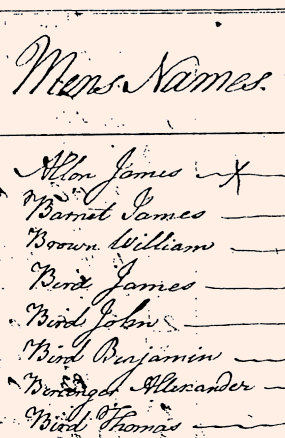 Mens Names.
Allon James X
Barnet James
Brown William
Bird James
Bird John
Bird Benjamin
Beringer Allexander
Bird Thomas